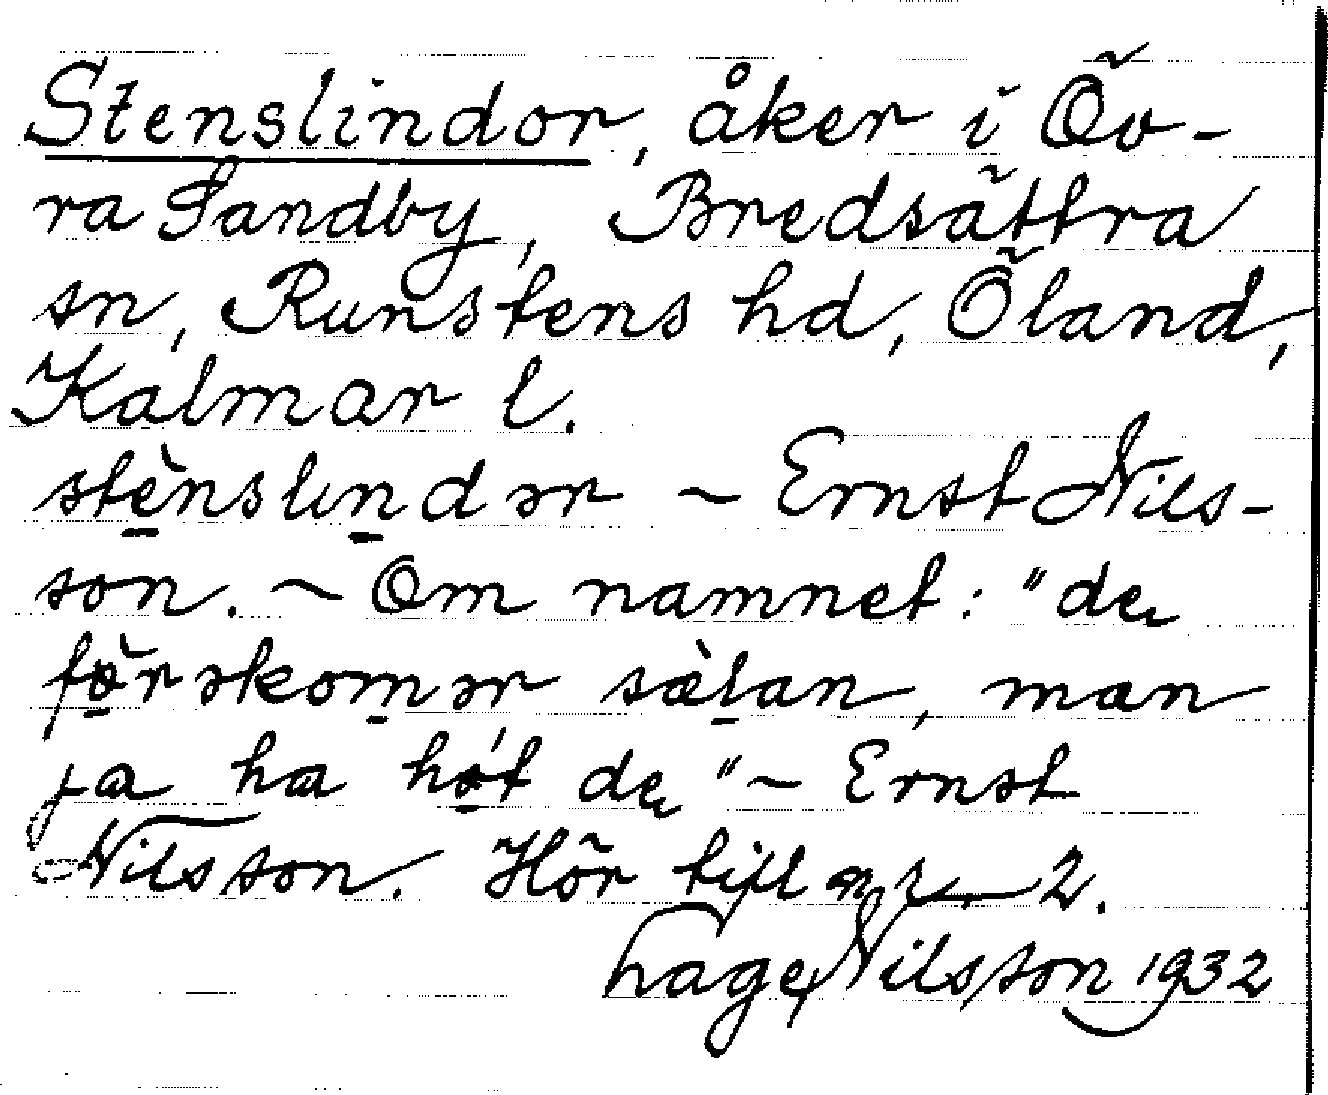 Stenslindor, åker i Öv-
ra Sandby, Bredsättra
sn, Runstens hd, Öland,
Kalmar l.
stènslındər ~ Ernst Nils-
son. ~ Om namnet: "de
fø̀rəkomər sæ̀lan, man
ja ha hǿt de" ~ Ernst
Nilsson. Hör till nr 2.
Hage Nilsson 1932